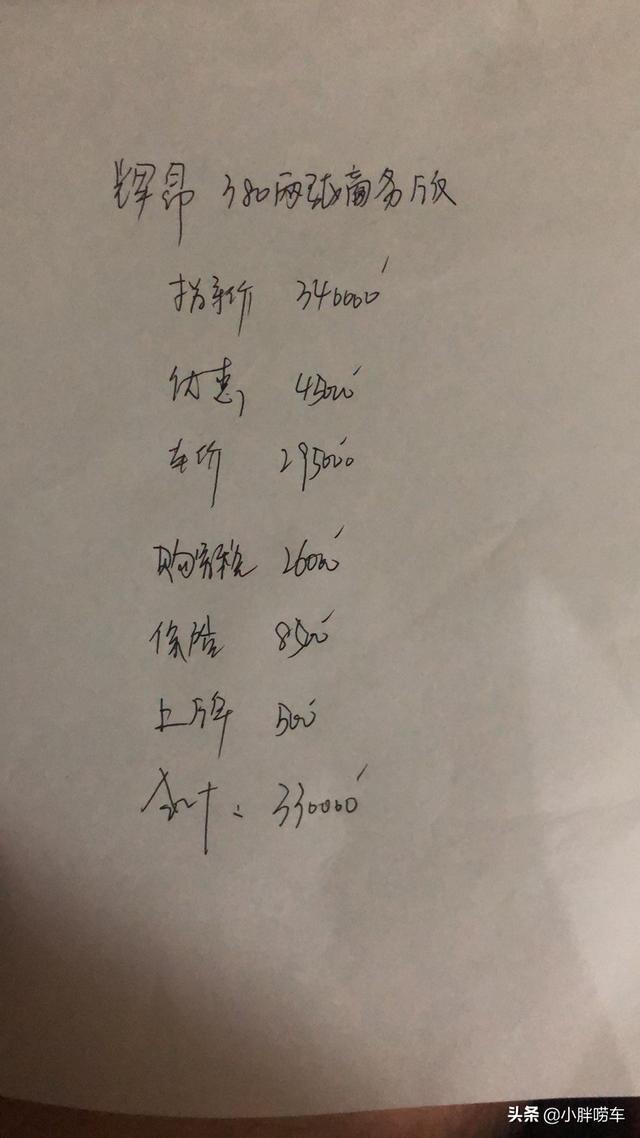 辉昂 380两驱商务版
指导价 340000
优惠 45000
车价 295000
购置税 26000
保险 8500
上牌 500
合计: 330000
头条 @小胖唠车